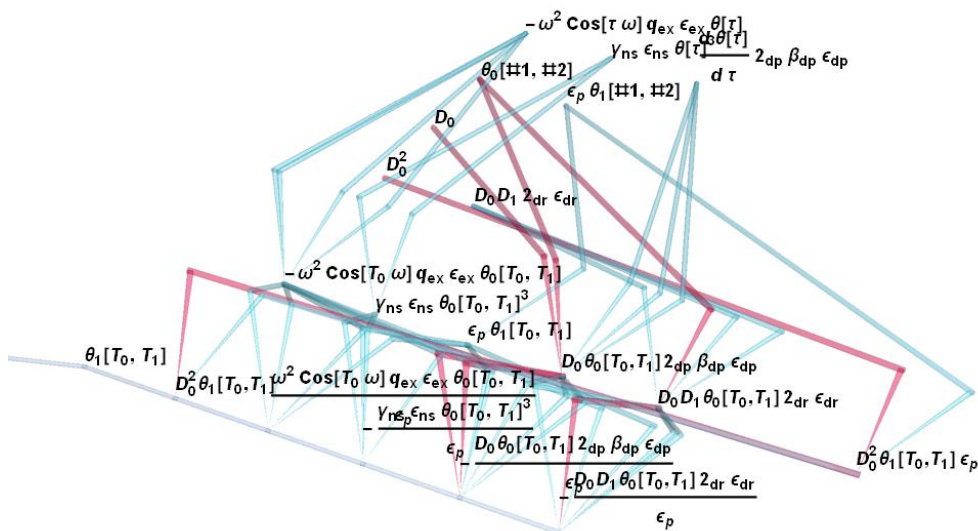 -ω² Cos[τ ω] q_ex ϵ_ex θ[τ]
γ_ns ϵ_ns θ[τ]³
dθ[τ]
2_dp β_dp ϵ_dp
d τ
θ₀[#1, #2]
ϵ_p θ₁[#1, #2]
D₀
D₀²
D₀ D₁ 2_dr ϵ_dr
-ω² Cos[T₀ ω] q_ex ϵ_ex θ₀[T₀, T₁]
γ_ns ϵ_ns θ₀[T₀, T₁]³
ϵ_p θ₁[T₀, T₁]
θ₁[T₀, T₁]
D₀ θ₀[T₀, T₁] 2_dp β_dp ϵ_dp
D₀² θ₁[T₀, T₁]
ω² Cos[T₀ ω] q_ex ϵ_ex θ₀[T₀, T₁]
D₀ D₁ θ₀[T₀, T₁] 2_dr ϵ_dr
ϵ_p
- γ_ns ϵ_ns θ₀[T₀, T₁]³
ϵ_p
- D₀ θ₀[T₀, T₁] 2_dp β_dp ϵ_dp
D₀² θ₁[T₀, T₁] ϵ_p
ϵ_p
- D₀ D₁ θ₀[T₀, T₁] 2_dr ϵ_dr
ϵ_p